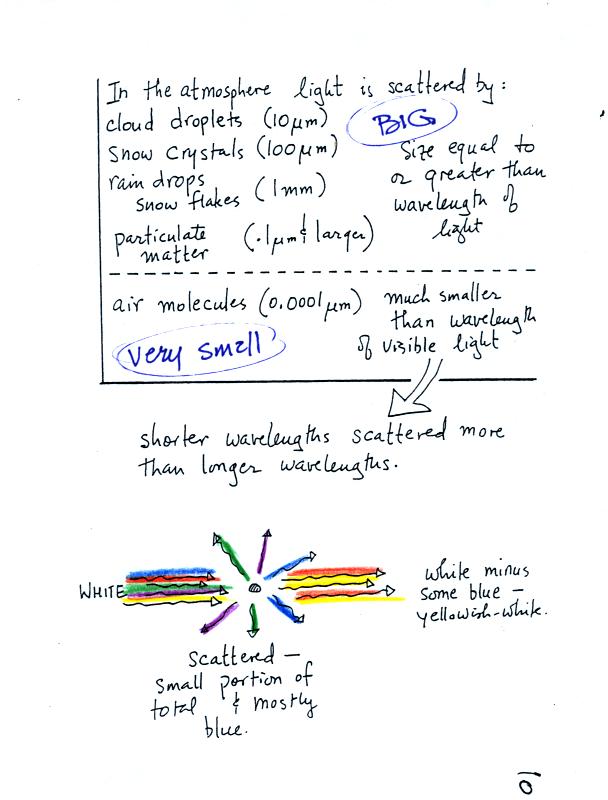 In the atmosphere light is scattered by:
cloud droplets (10 µm)
BIG
Snow Crystals (100 µm)
rain drops
snow flakes (1mm)
particulate
matter (.1µm & larger)
Size equal to
or greater than
wavelength of
light
air molecules (0.0001 µm)
very small
much smaller
than wavelength
of visible light
shorter wavelengths scattered more
than longer wavelengths.
WHITE
white minus
some blue –
yellowish-white.
scattered –
small portion of
total & mostly
blue.
10